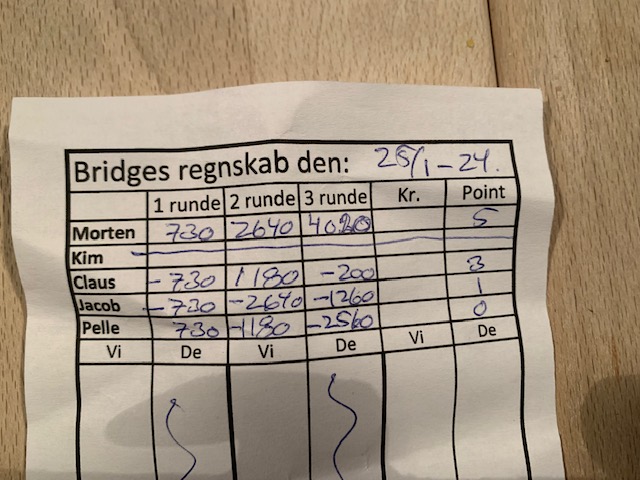 Bridges regnskab den: 25/1-24.
1 runde 2 runde 3 runde Kr. Point
Morten 730 2640 4020 5
Kim
Claus -730 1180 -200 3
Jacob -730 -2640 -1260 1
Pelle 730 -1180 -2560 0
Vi De Vi De Vi De